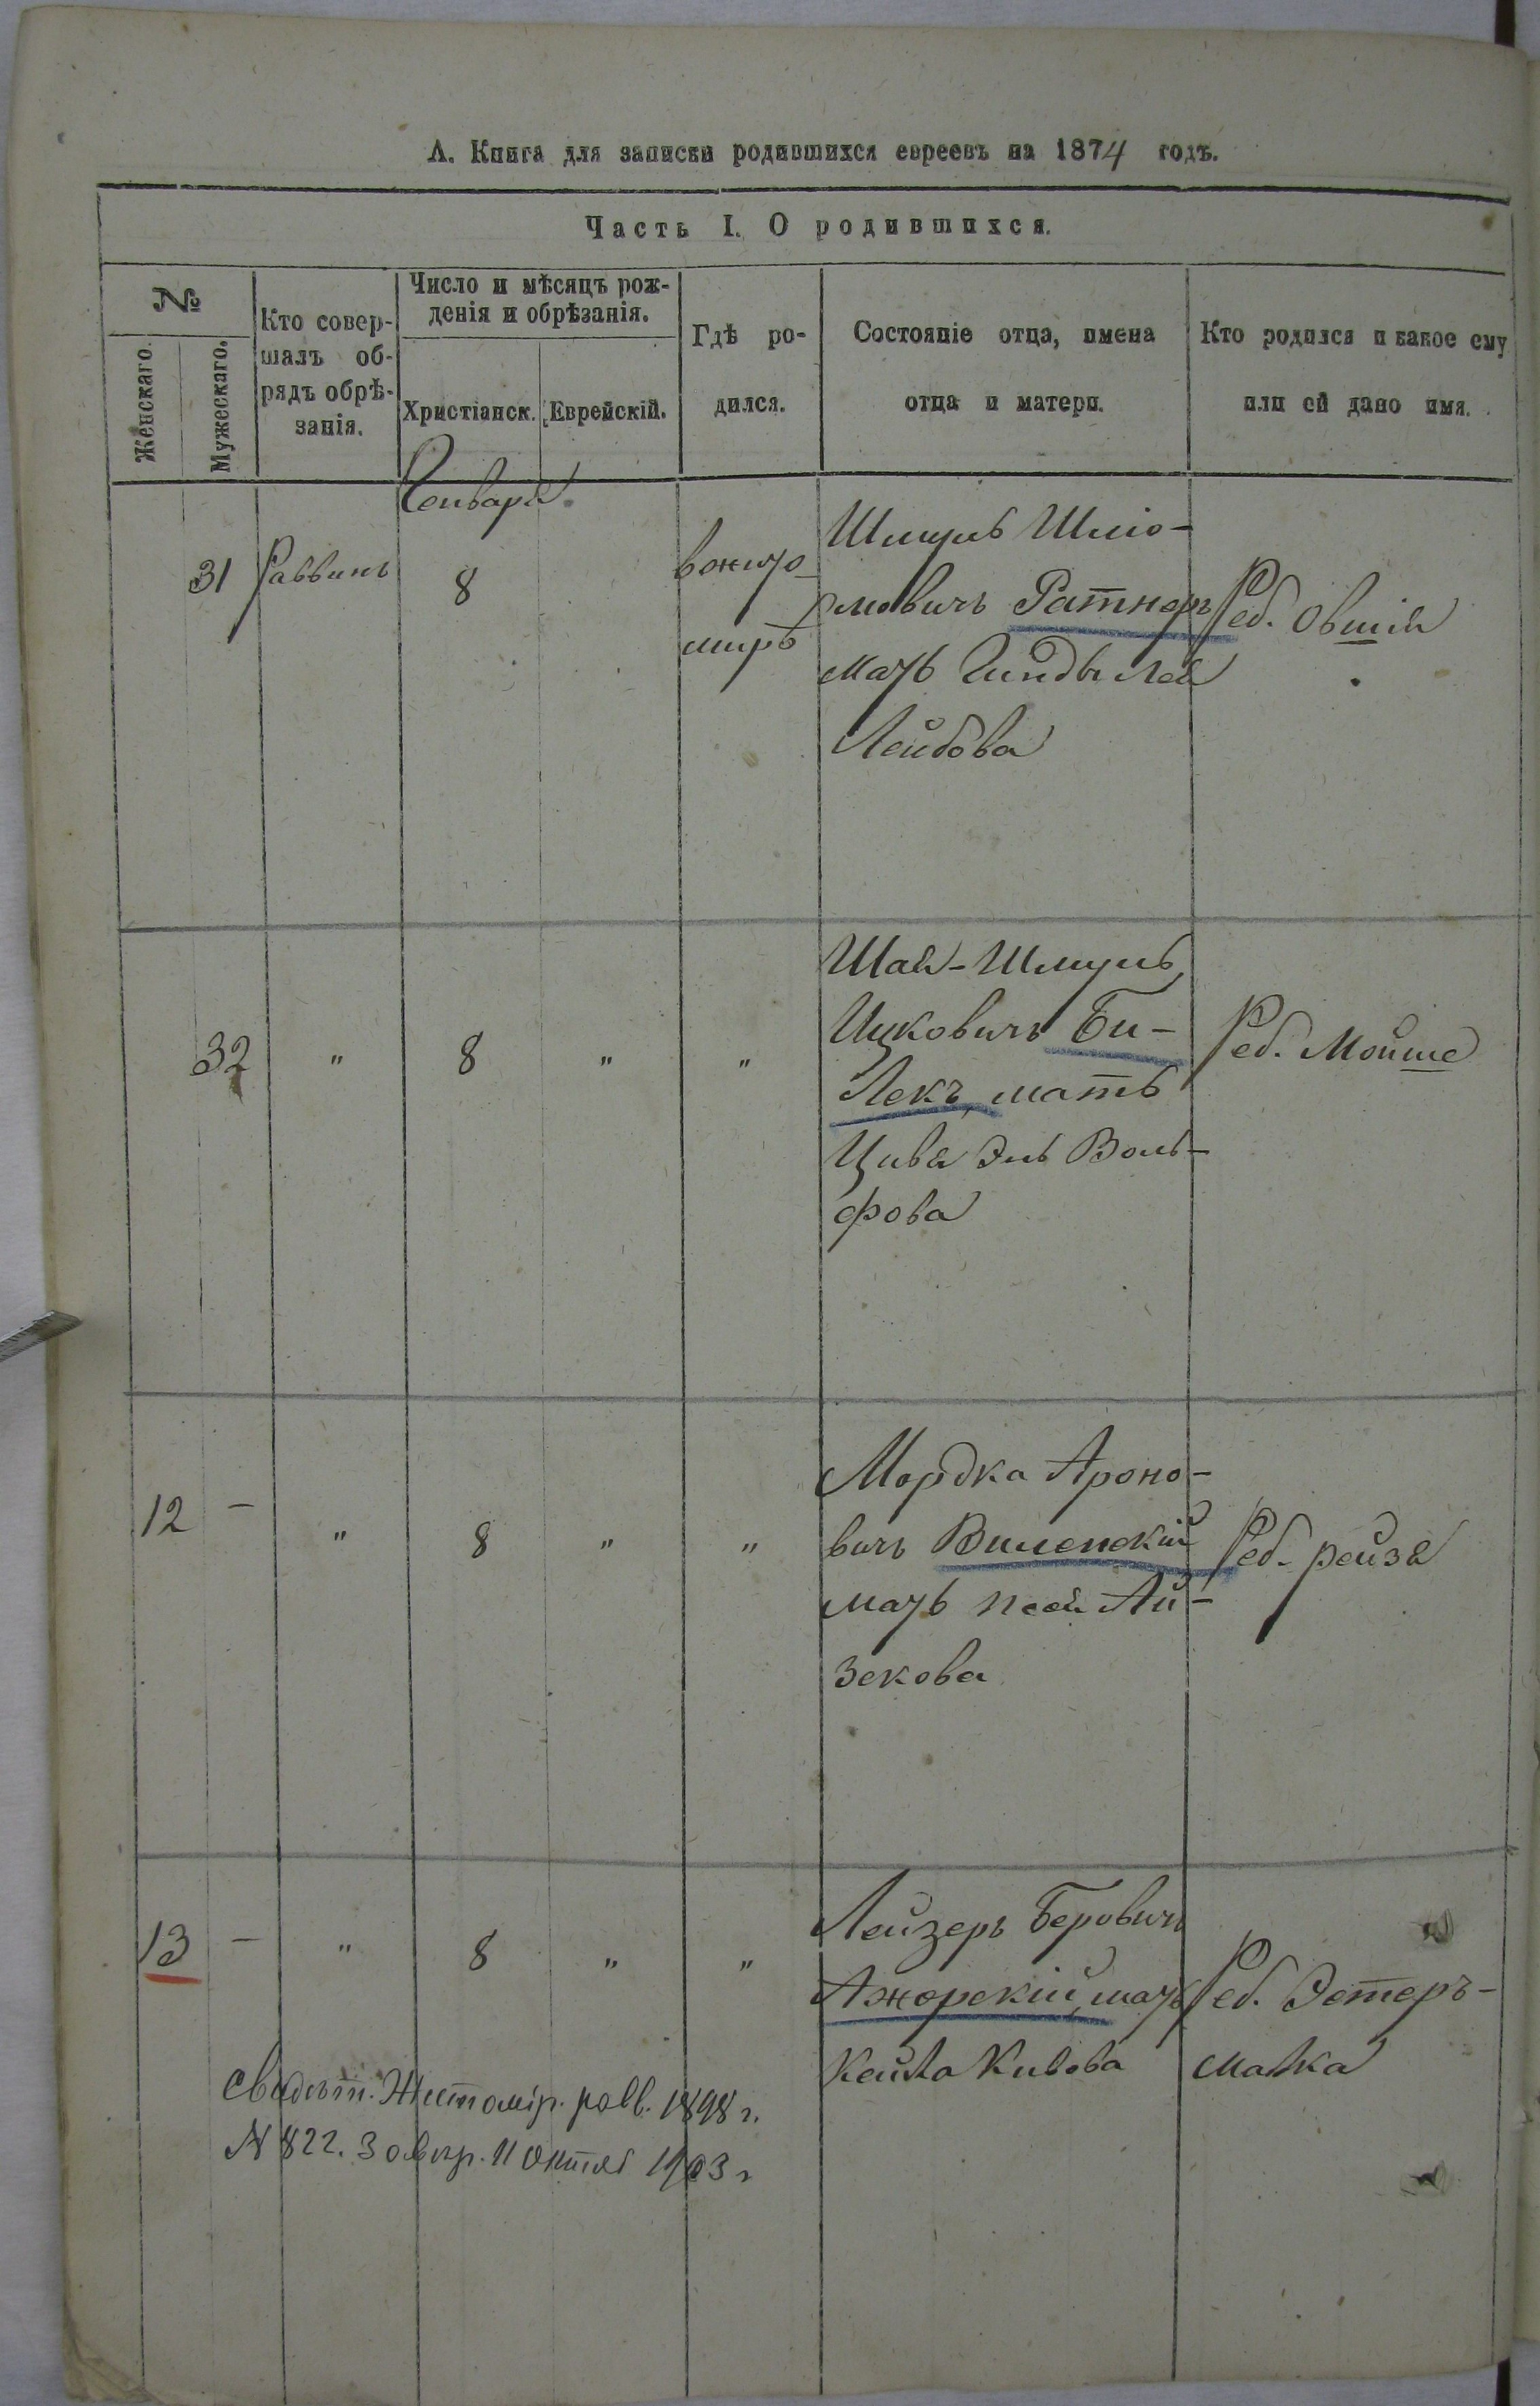 А. Книга для записки родившихся евреевъ на 1874 годъ.
Часть I. О родившихся.
№
Женскаго.
Мужескаго.
Кто совер-
шалъ об-
рядъ обрѣ-
занія.
Число и мѣсяцъ рож-
денія и обрѣзанія.
Христіанск.
Еврейскій.
Гдѣ ро-
дился.
Состояніе отца, имена
отца и матери.
Кто родился и какое ему
или ей дано имя.
Генваря
31
Раввинъ
8
вжито-
мирѣ
Шмуль Шліо-
мовичъ Ратнеръ
мать Гинды Лея
Лейбова
Реб. Овшія
32
"
8
"
"
Шая-Шмуль
Ицковичъ Би-
лекъ, мать
Цивя Эль Воль-
фова
Реб. Мойше
12
-
"
8
"
"
Мордка Ароно-
вичъ Виленскій
мать Ай-
зекова
Реб. рейзя
13
-
"
8
"
"
Лейзеръ Беровичъ
Ажорскій, мать
Кейла Кивова
Реб. Эстеръ-
малка
Свидѣт. Житомір. равв. 1898 г.
№ 822. 11 1903 г